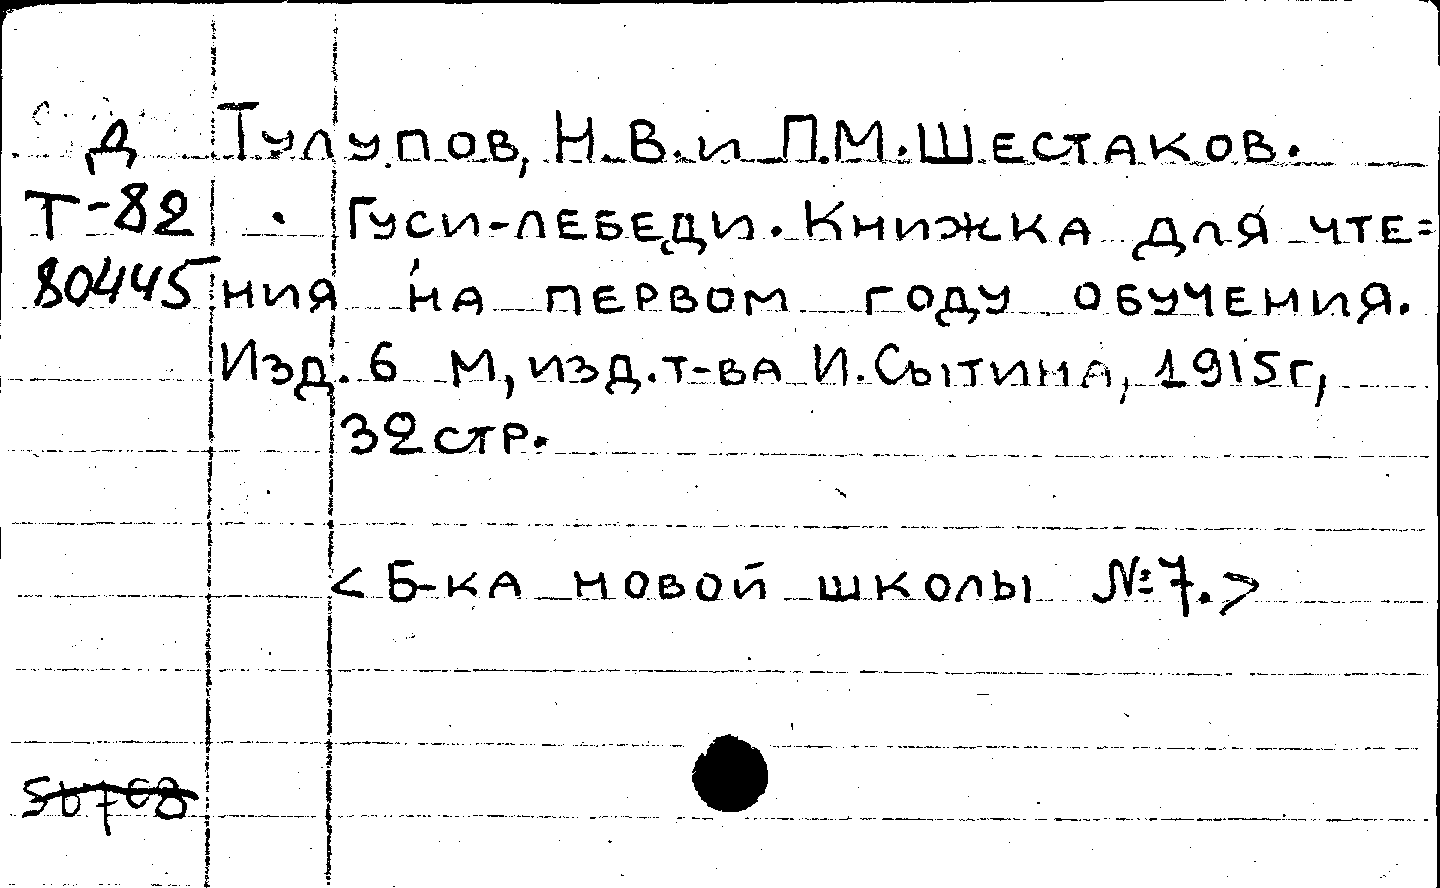 Д Тулупов, Н.В. и П.М. Шестаков.
Т-82 Гуси-лебеди. Книжка для чте=
80445 ния на первом году обучения.
Изд. 6 М, изд. т-ва И. Сытина, 1915г,
32 стр.
<Б-ка новой школы №7.>